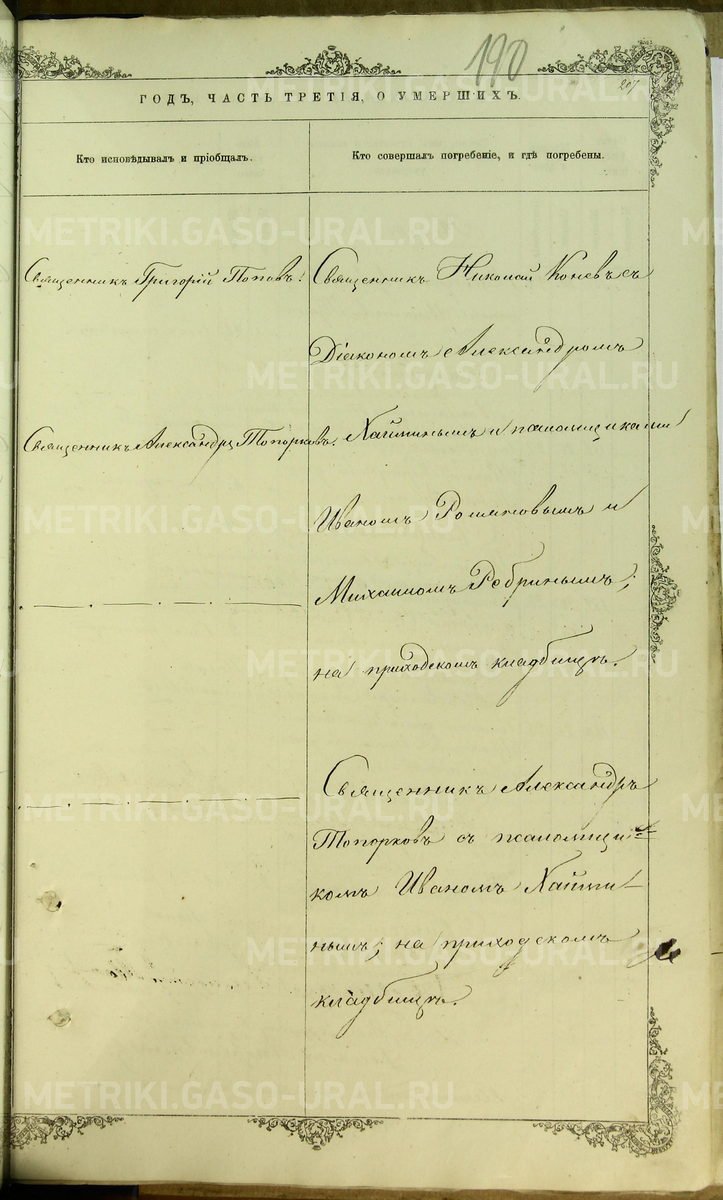 190
207
ГОДЪ, ЧАСТЬ ТРЕТІЯ, О УМЕРШИХЪ.
Кто исповѣдывалъ и пріобщалъ.
Кто совершалъ погребеніе, и гдѣ погребены.
Священникъ Григорій Поповъ.
Священникъ Александръ Топорковъ.
Священникъ Николай Коневъ съ
Діакономъ Александромъ
и псаломщиками
Иваномъ Романовымъ и
Михаиломъ Ребринымъ;
на приходскомъ кладбищѣ.
Священникъ Александръ
Топорковъ съ псаломщи-
комъ Иваномъ
нымъ; на приходскомъ
кладбищѣ.
METRIKI.GASO-URAL.RU